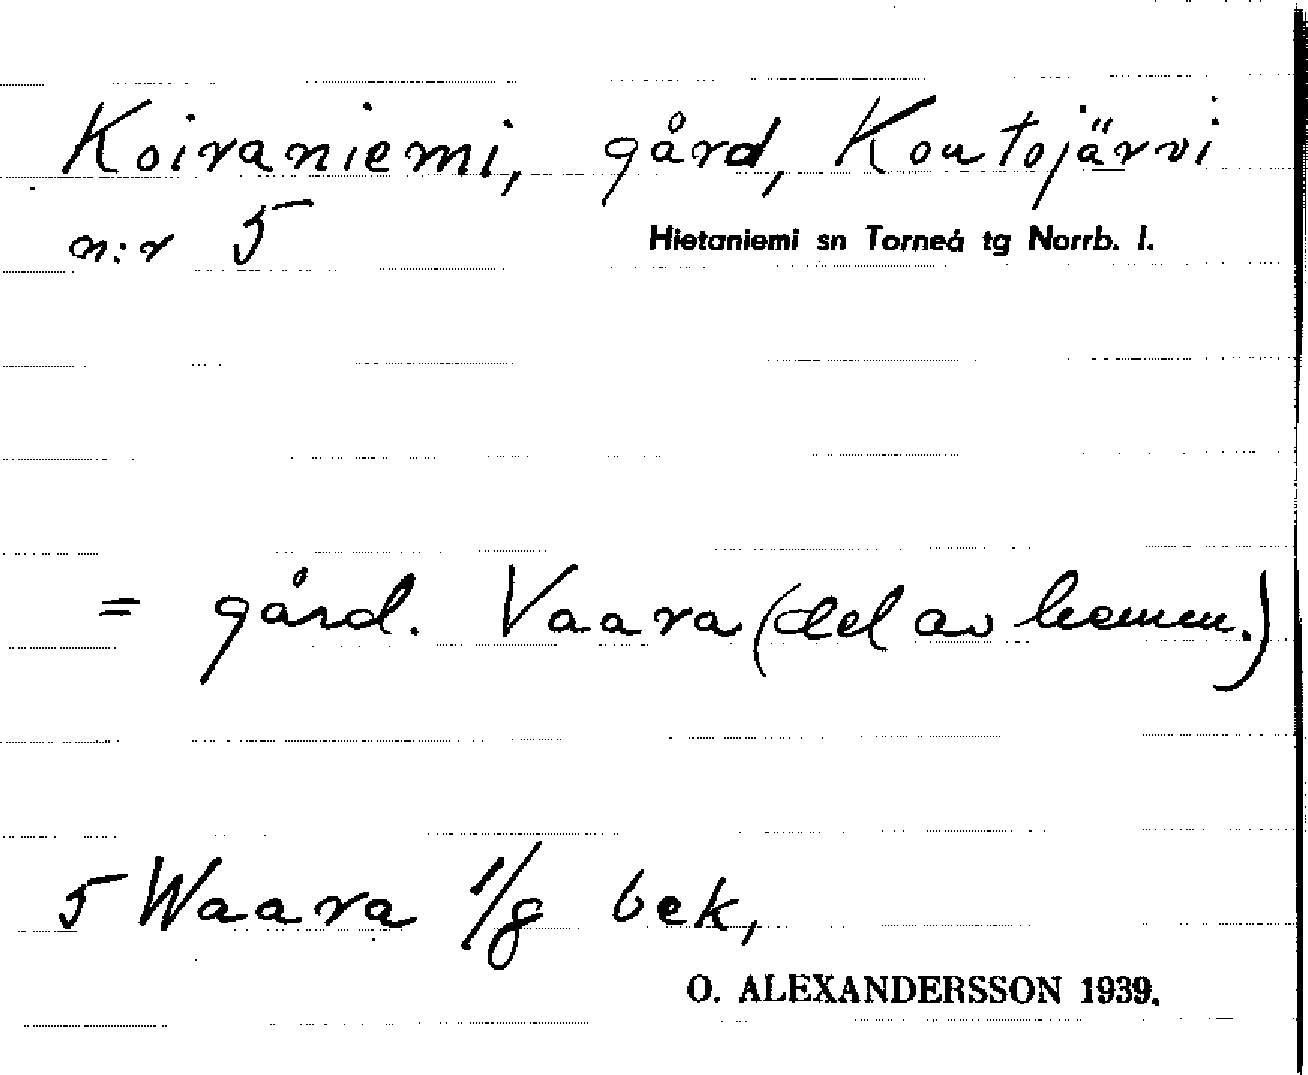 Koivaniemi, gård, Koutojärvi
n:r 5
Hietaniemi sn Torneå tg Norrb. l.
= gård. Vaara (del av hemm.)
5 Waara 1/8 bek,
O. ALEXANDERSSON 1939.